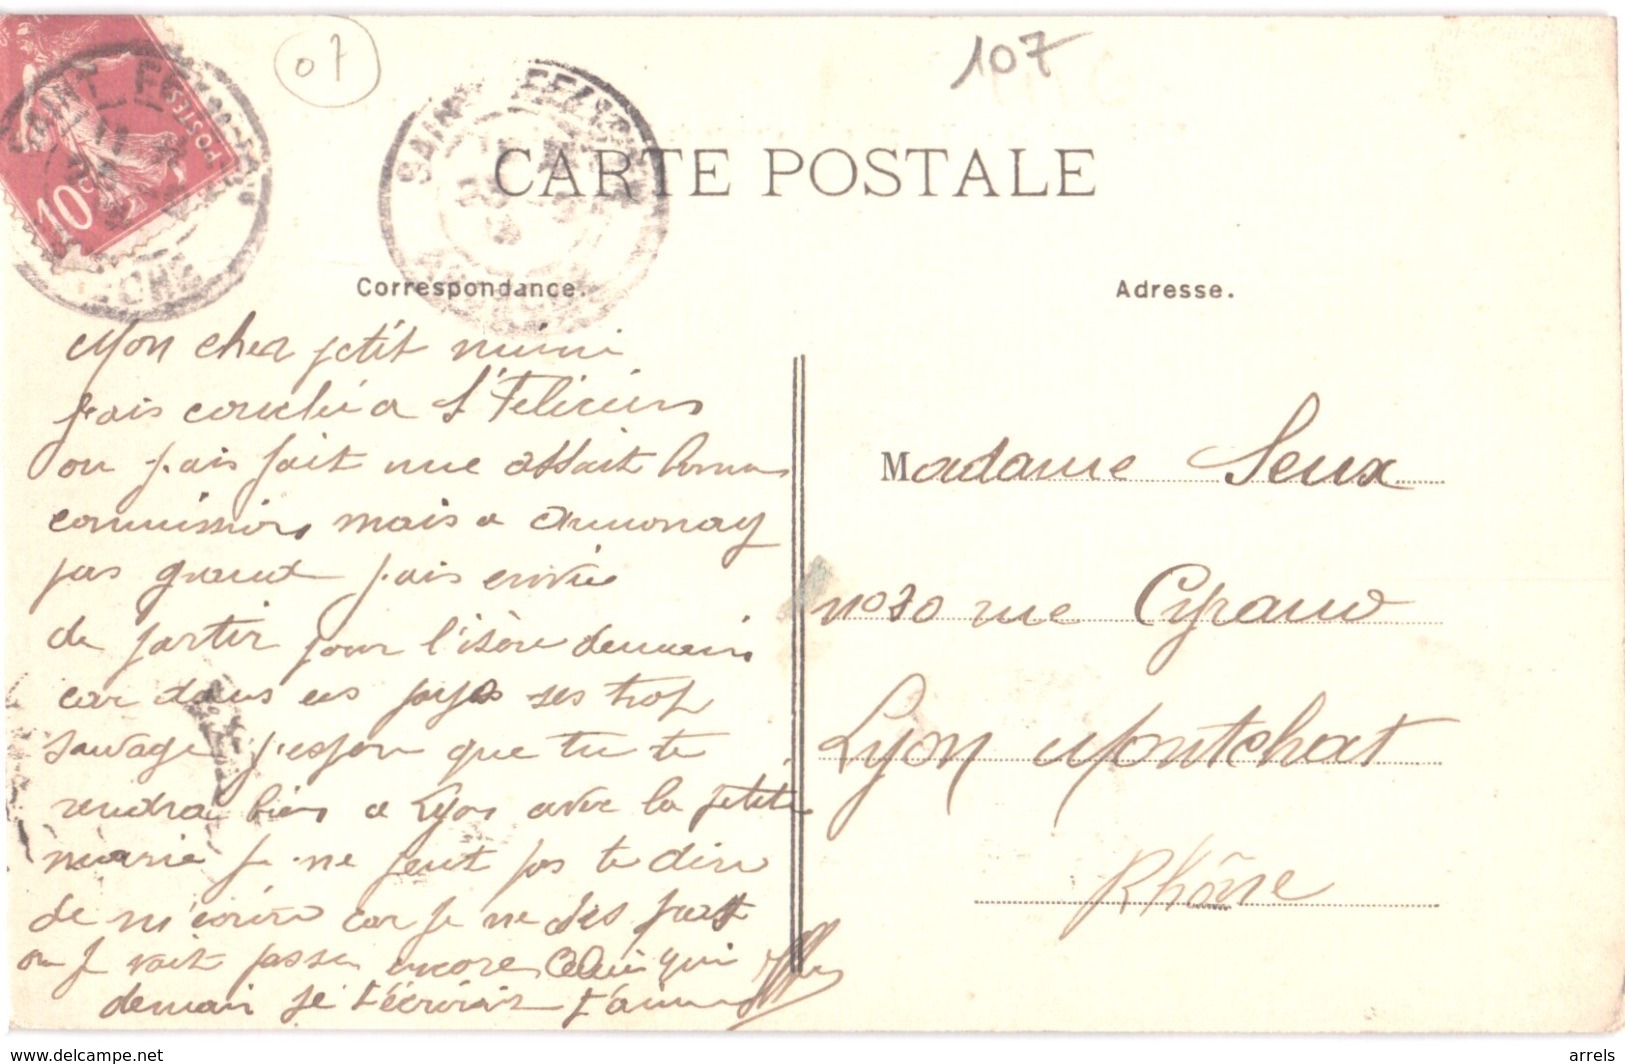 107
07
10c
POSTES
SAINT-FE
CARTE POSTALE
Correspondance.
Adresse.
Mon cher petit mimi
j'ais couché a St Felicien
ou j'ais fait une assait bonne
commission mais a annonay
pas grand j'ais envie
de partir pour l'isère demain
car dans ces pays ses trop
sauvage j'espere que tu te
rendra bien a Lyon avec la petite
marie je ne peut pas te dire
de m'écrire car je ne sès pas
ou je vait passer encore Celui qui
demain je t'écrirais t'aime
Madame Seux
no 30 rue Cyrano
Lyon Montchat
Rhône
www.delcampe.net
arrels